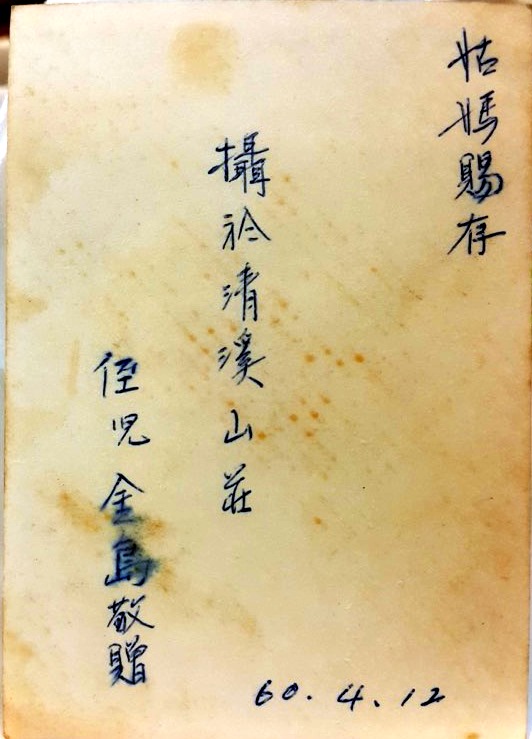 姑媽賜存
攝於清溪山莊
侄児金島敬贈
60.4.12